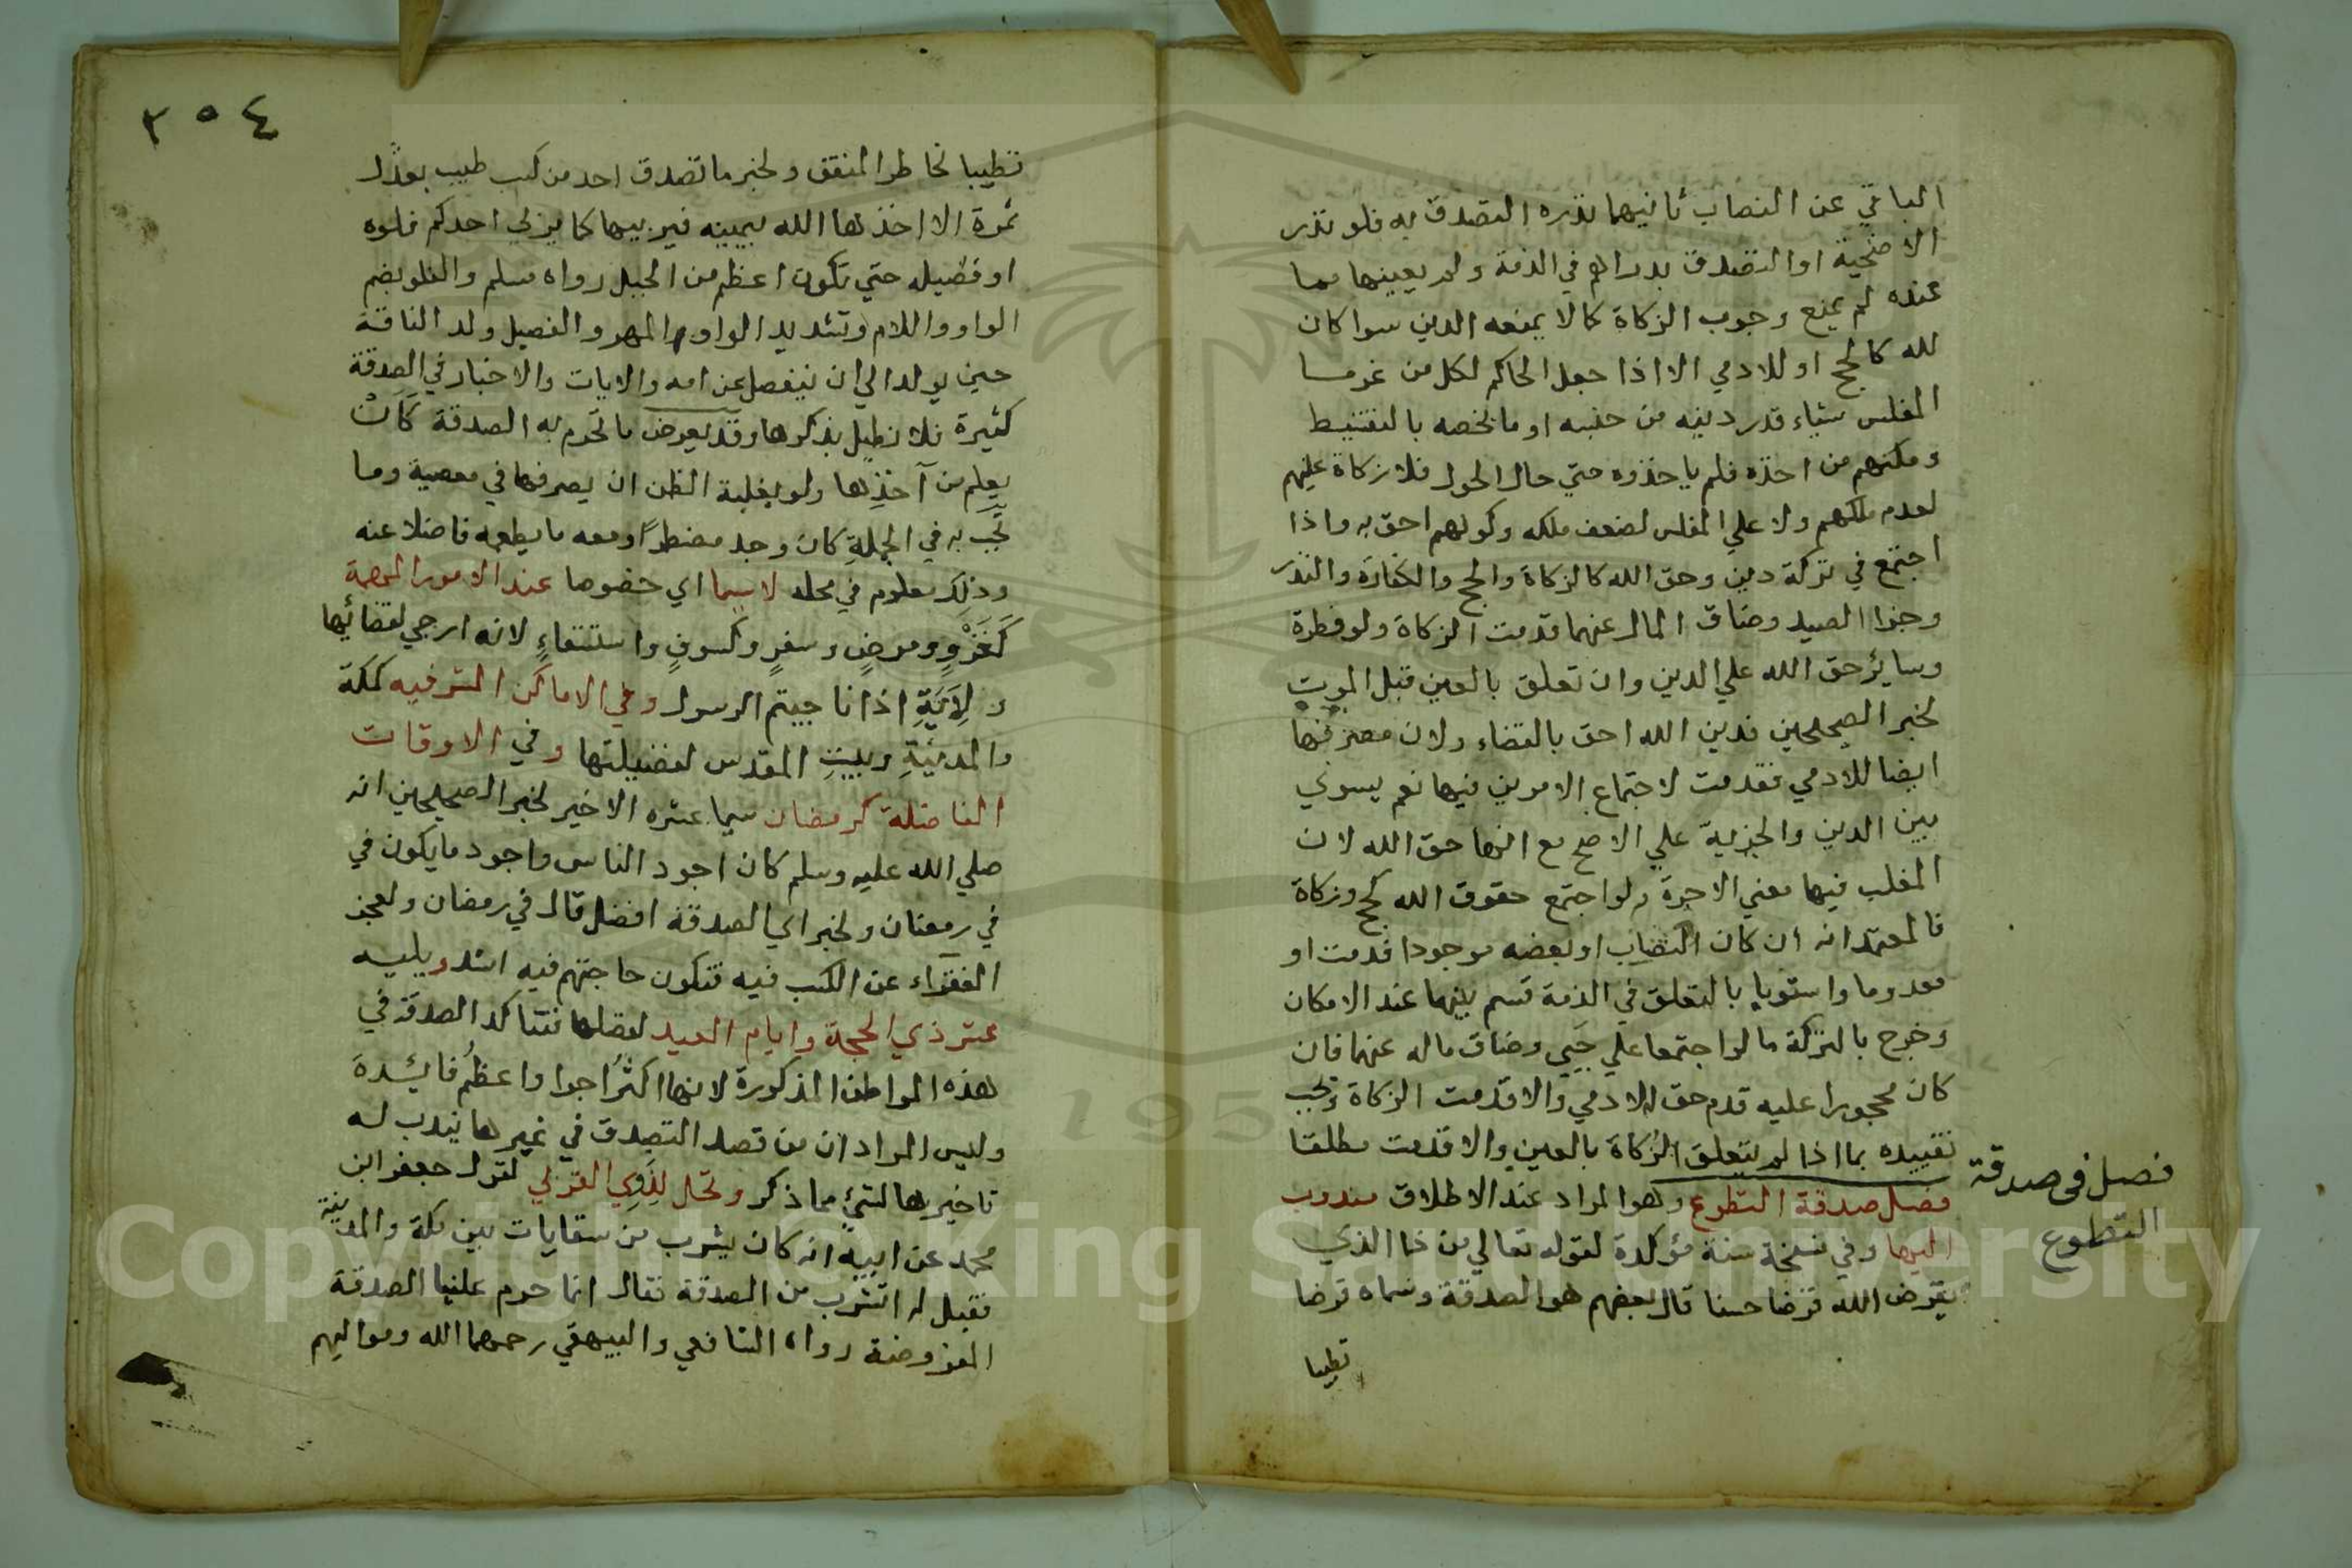 الباقي عن النصاب ثانيهما نذره التصدق به فلو نذر
الاضحية او التصدق بدراهم في الذمة ولم يعينها مما
عنده لم يمنع وجوب الزكاة كما لا يمنعه الدين سوا كان
لله كالحج او للادمي الا اذا جعل الحاكم لكل من غرما
المفلس شياء قدر دينه من جنسه او ما يخصه بالتقسيط
ومكنهم من اخذه فلم ياخذوه حتي حال الحول فلا زكاة عليهم
لعدم ملكهم ولا علي المفلس لضعف ملكه وكونهم احق به واذا
اجتمع في تركة دين وحق الله كالزكاة والحج والكفارة والنذر
وجزا الصيد وضاق المال عنهما قدمت الزكاة ولو فطرة
وسايرحق الله علي الدين وان تعلق بالعين قبل الموت
لخبر الصحيحين فدين الله احق بالقضاء ولان مصرفها
ايضا للادمي فقدمت لاجتماع الامرين فيها نعم يسوي
بين الدين والجزية علي الاصح مع انها حق الله لان
المغلب فيها معني الاجرة ولو اجتمع حقوق الله كحج وزكاة
فالمعتمد انه ان كان النصاب او بعضه موجودا قدمت او
معدوما واستويا بالتعلق في الذمة قسم بينهما عند الامكان
وخرج بالتركة ما لو اجتمعا علي حَيّ وضاق ماله عنهما فان
كان محجورا عليه قدم حق الادمي والا قدمت الزكاة ويجب
تقييده بما اذا لم تتعلق الزكاة بالعين والا قدمت مطلقا
فصل صدقة التطوع وهو المراد عند الاطلاق مندوب
اليها وفي نسخة سنة مؤكدة لقوله تعالي من ذا الذي
يقرض الله قرضا حسنا قال بعضهم هو الصدقة وسماه قرضا
تطييبا
فصل فى صدقة
التطوع
٣٥٤
تطييبا لخاطر المنفق ولخبر ما تصدق احد من كسب طيب بعدل
تمرة الا اخذها الله بيمينه فيربيها كما يربي احدكم فلوه
او فصيله حتي تكون اعظم من الجبل رواه مسلم والفلو بضم
الواو واللام وتشديد الواو المهر والفصيل ولد الناقة
حين يولد الي ان ينفصل عن امه والايات والاخبار في الصدقة
كثيرة فلا نطيل بذكرها وقد يعرض ما تحرم به الصدقة كَاَنْ
يعلم من آخذِها ولو بغلبة الظن ان يصرفها في معصية وما
تجب به في الجملةِ كان وجد مضطرًا ومعه ما يطعمه فاضلا عنه
وذلك معلوم في محله لا سيما اي خصوصا عند الامور المهمة
كَغَزْوٍ ومرضٍ وسفرٍ وكسوفٍ واستسقاءٍ لانه ارجي لقضائها
ولِاَيَةِ اذا ناجيتم الرسول وفي الاماكن الشرفيه كمكة
والمدينةِ وبيتِ المقدس لفضيلتها وفي الاوقات
الفاضلة كرمضان سيما عشره الاخير لخبر الصحيحين انه
صلي الله عليه وسلم كان اجود الناس واجود ما يكون في
في رمضان ولخبر اي الصدقة افضل قال في رمضان ولعجز
الفقرآء عن الكسب فيه فتكون حاجتهم فيه اشد ويليه
عشر ذي الحجة وايام العيد لفضلها فتتاكد الصدقة في
هذه المواطن المذكورة لانها اكثرُ اجرا واعظمُ فايدة
وليس المراد ان من قصد التصدق في غيرها يندب له
تاخيرها لشئ مما ذكر وتحل لِذَوِي القربي لقول جعفر ابن
محمد عن ابيه انه كان يشرب من سقايات بين مكة والمدينة
فقيل له اتشرب من الصدقة فقال انما حرم علينا الصدقة
المفروضة رواه الشافعي والبيهقي رحمهما الله ومواليهم
Copyright © King Saud University
195